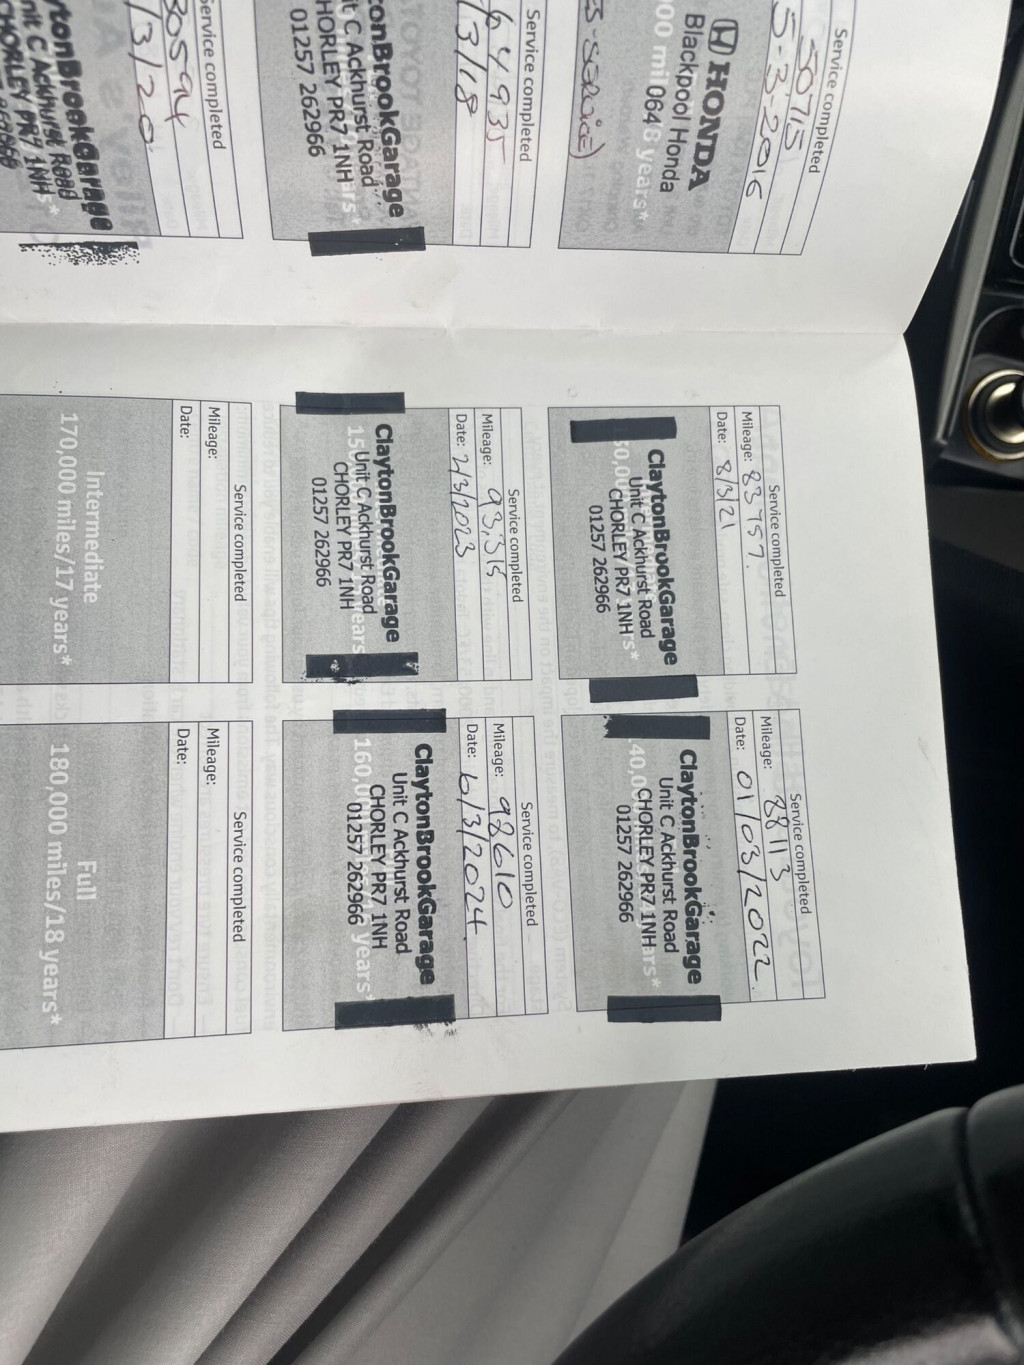 Service completed
50715
5-3-2016
HONDA
Blackpool Honda
Service completed
64935
/3/18
tonBrookGarage
it C Ackhurst Road
CHORLEY PR7 1NH
01257 262966
Service completed
80594
/3/20
ytonBrookGarage
nit C Ackhurst Road
CHORLEY PR7 1NH
Service completed
Mileage: 83757.
Date: 8/3/21
ClaytonBrookGarage
Unit C Ackhurst Road
CHORLEY PR7 1NH
01257 262966
Service completed
Mileage: 88113
Date: 01/03/2022.
ClaytonBrookGarage
Unit C Ackhurst Road
CHORLEY PR7 1NH
01257 262966
Service completed
Mileage: 93,315
Date: 2/3/2023
ClaytonBrookGarage
Unit C Ackhurst Road
CHORLEY PR7 1NH
01257 262966
Service completed
Mileage: 98610
Date: 6/3/2024.
ClaytonBrookGarage
Unit C Ackhurst Road
CHORLEY PR7 1NH
01257 262966
Service completed
Mileage:
Date:
Intermediate
170,000 miles/17 years*
Service completed
Mileage:
Date:
Full
180,000 miles/18 years*